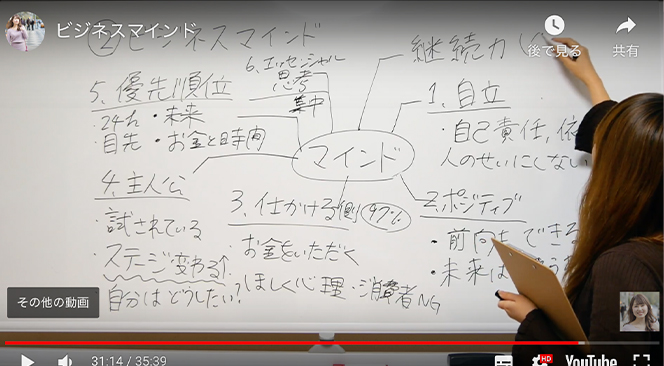 ビジネスマインド
後で見る
共有
②ビジネスマインド
継続力
6.エッセンシャル
思考
集中
5.優先順位
・24h ・未来
・目先 ・お金と時間
1.自立
・自己責任,依
人のせいにしない
マインド
4.主人公
・試されている
・ステージ変わる↑
自分はどうしたい?
3.仕かける側 97%
・お金をいただく
・ほしく心理・消費者NG
2.ポジティブ
・前向き できる
・未来は
その他の動画
31:14 / 35:39
HD
YouTube